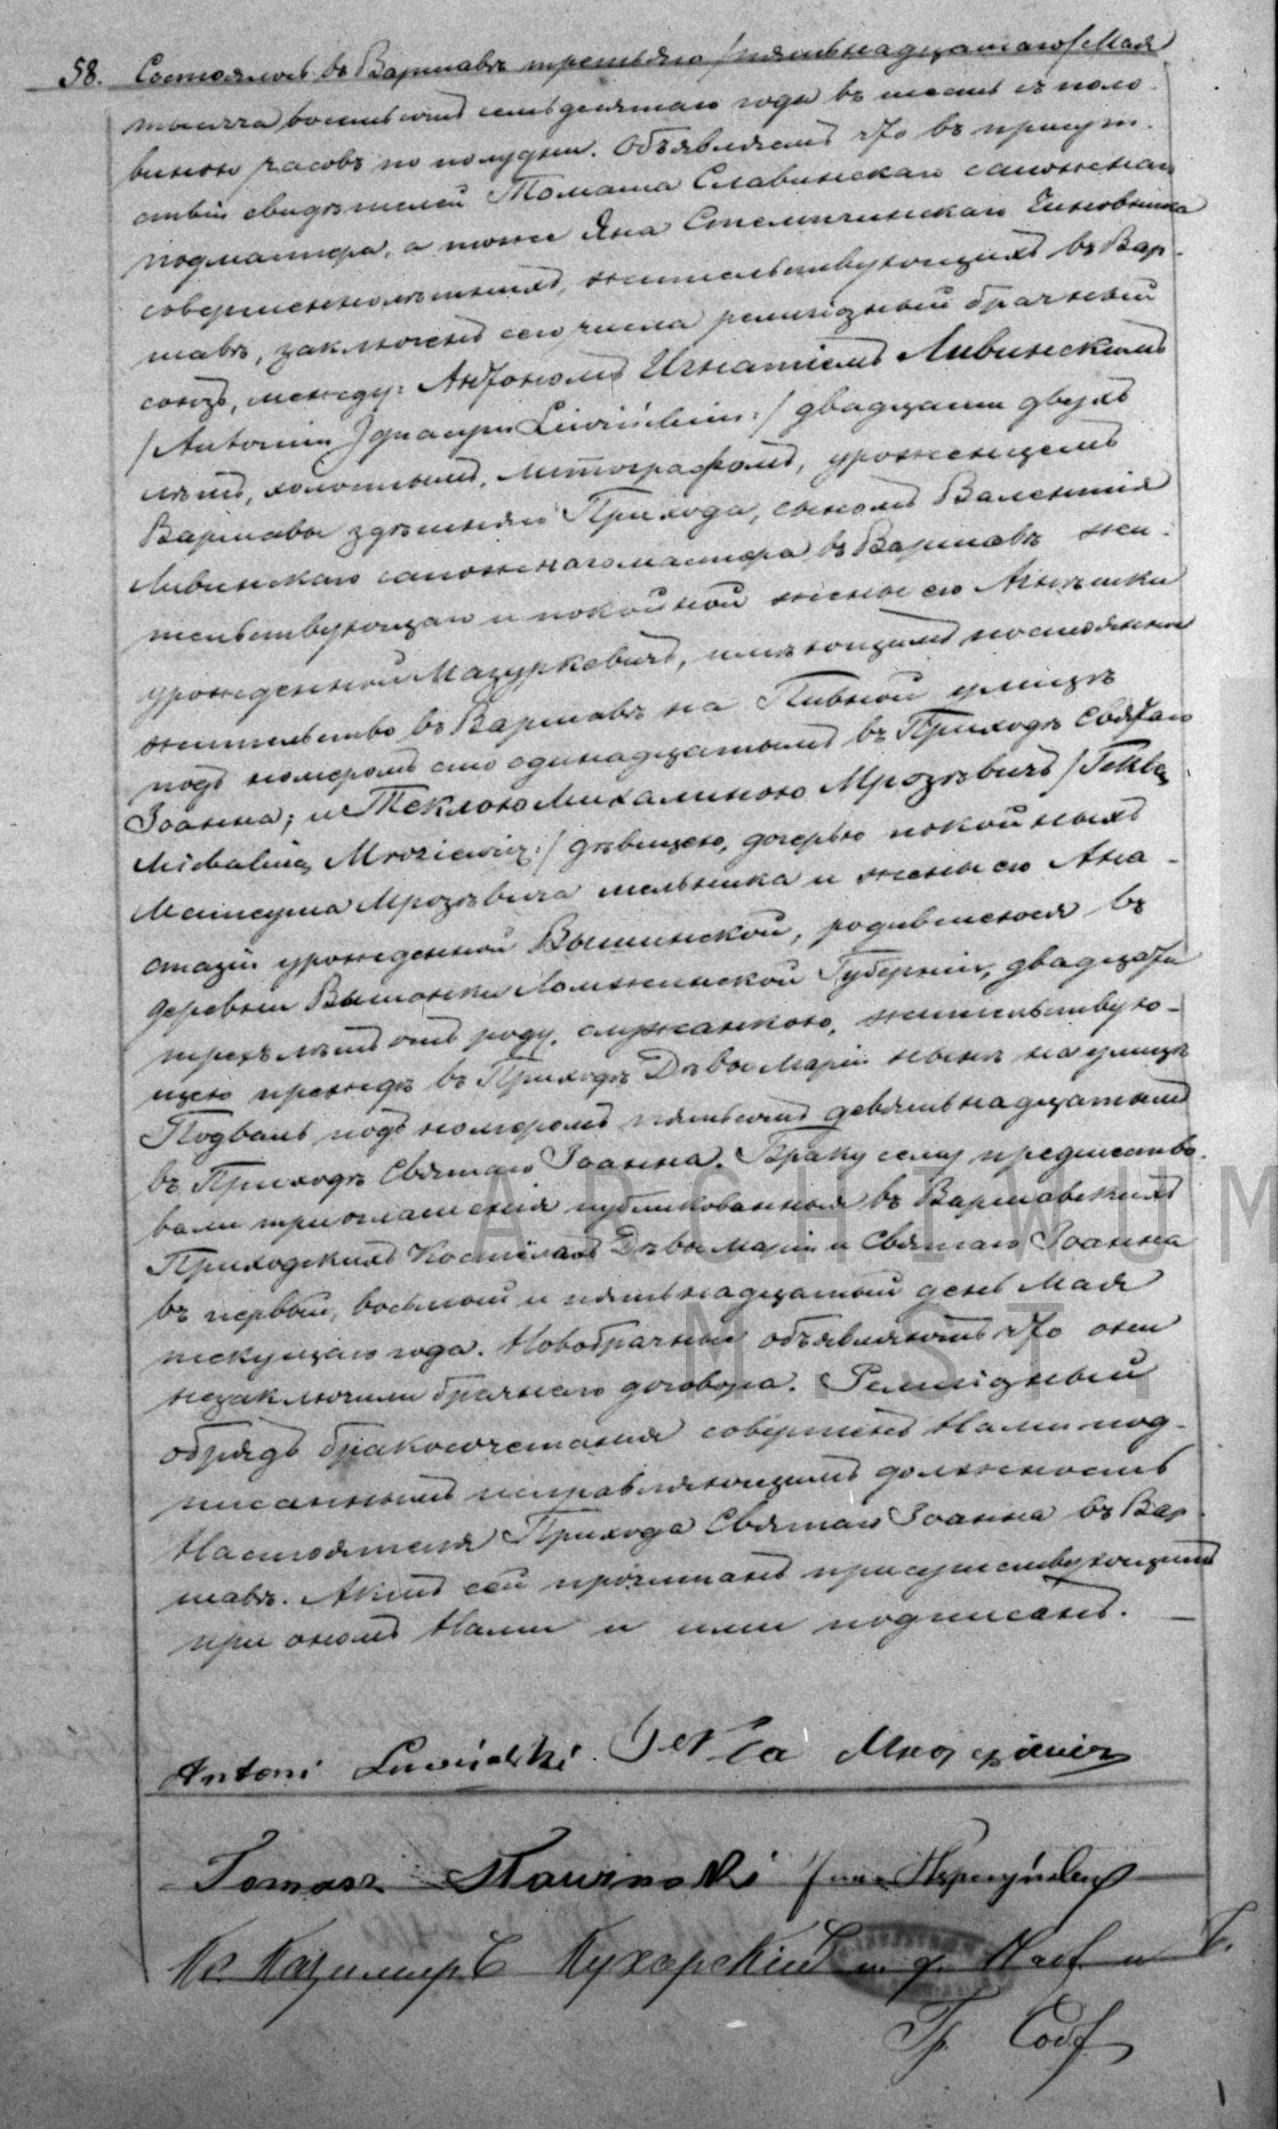 58. Состоялось въ Варшавѣ третьяго /пятьнадцатаго/ Мая
тысяча восемьсотъ семьдесятаго года въ шесть съ поло-
виною часовъ по полудни. Объявляемъ что въ присут-
ствіи свидѣтелей Томаша Славинскаго сапожнаго
подмастера, а тоже Яна Стемпчинскаго Чиновника
совершеннолѣтныхъ, жительствующихъ въ Вар-
шавѣ, заключенъ сего числа религіозный брачный
союзъ, между: Антономъ Игнатіемъ Ливинскимъ
/Antonim Ignacym Liwińskim:/ двадцати двухъ
лѣтъ, холостымъ, литографомъ, уроженцемъ
Варшавы здѣшняго Прихода, сыномъ Валентія
Ливинскаго сапожнаго мастера въ Варшавѣ жи-
тельствующаго и покойной жены его Агнѣшки
урожденной Мазуркевичъ, имѣющимъ постоянное
жительство въ Варшавѣ на Пивной улицѣ
подъ номеромъ сто одинадцатымъ въ Приходѣ Святаго
Іоанна; и Теклою Михалиною Мрозѣвичъ /Teklą
Michaliną Mroziewicz:/ дѣвицею, дочерью покойныхъ
Матеуша Мрозѣвича мельника и жены его Ана-
стазіи урожденной Вышинской, родившеюся въ
деревни Вышонки Ломжинской Губерніи, двадцати
трехъ лѣтъ отъ роду, служанкою, жительствую-
щею прежде въ Приходѣ Дѣвы Маріи нынѣ на улицѣ
Подваль подъ номеромъ пятьсотъ девятьнадцатымъ
въ Приходѣ Святаго Іоанна. Браку сему предшество-
вали три оглашенія публикованныя въ Варшавскихъ
Приходскихъ Костёлахъ Дѣвы Маріи и Святаго Іоанна
въ первый, восьмой и пятьнадцатый день Мая
текущаго года. Новобрачные объявляютъ что они
незаключили брачнаго договора. Религіозный
обрядъ бракосочетанія совершенъ Нами под-
писаннымъ исправляющимъ должность
Настоятеля Прихода Святаго Іоанна въ Вар-
шавѣ. Актъ сей прочитанъ присутствующимъ
при ономъ Нами и ими подписанъ.
Antoni Liwiński. Tekla Mrozziewicz
Tomasz Sławinski Jan
Кс. Казимиръ Кухарскій и. д. Наст. и
Гр. Сост.
ARCHIWUM
M. ST